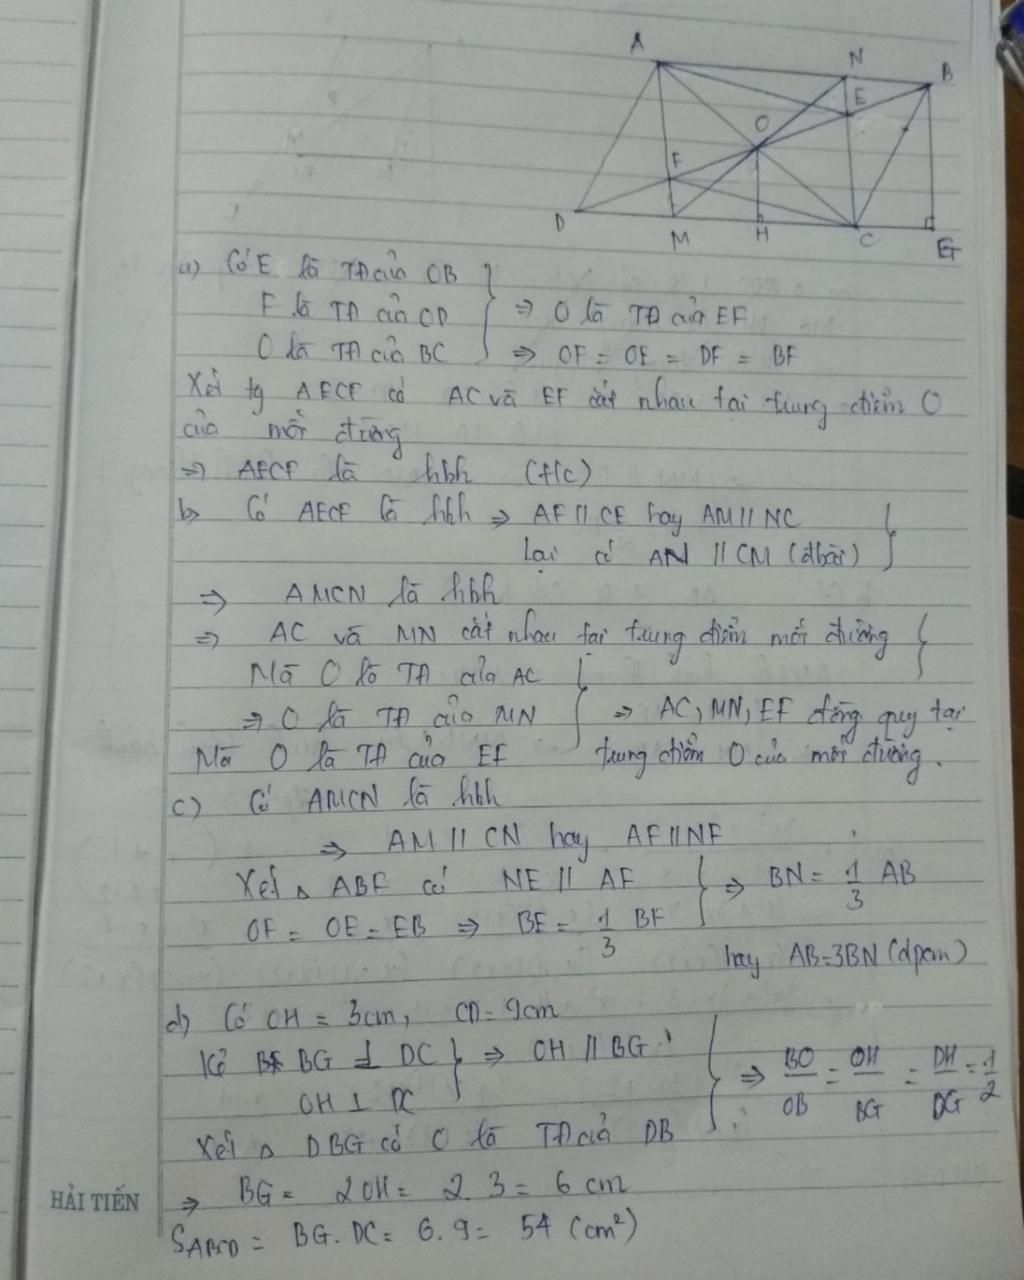 A
N
B
E
O
F
D
M
H
C
G
a) Có E là TĐ của OB
F là TĐ của OD
O là TĐ của BC
⇒ O là TĐ của EF
⇒ OF = OE = DF = BF
Xét tg AECF có AC và EF cắt nhau tại trung điểm O
của mỗi đường
⇒ AECF là hbh (t/c)
b) Có AECF là hbh ⇒ AF // CE hay AM // NC
Lại có AN // CM (đbài)
⇒ AMCN là hbh
⇒ AC và MN cắt nhau tại trung điểm mỗi đường
Mà O là TĐ của AC
⇒ O là TĐ của MN
Mà O là TĐ của EF
⇒ AC, MN, EF đồng quy tại
trung điểm O của mỗi đường.
c) Có AMCN là hbh
⇒ AM // CN hay AF // NF
Xét △ ABF có NE // AF
OF = OE = EB ⇒ BE = 1/3 BF
⇒ BN = 1/3 AB
hay AB = 3BN (đpcm)
d) Có OH = 3cm, CD = 9cm
Kẻ BG ⊥ DC
OH ⊥ DC
⇒ OH // BG
Xét △ DBG có O là TĐ của DB
⇒ BO/OB = OH/BG = DH/DG = 1/2
⇒ BG = 2OH = 2 3 = 6 cm
S ABCD = BG. DC = 6. 9 = 54 (cm²)
HẢI TIẾN